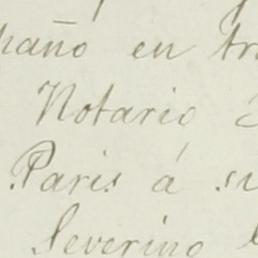 paño en tr
Notario
Paris á su
Severino